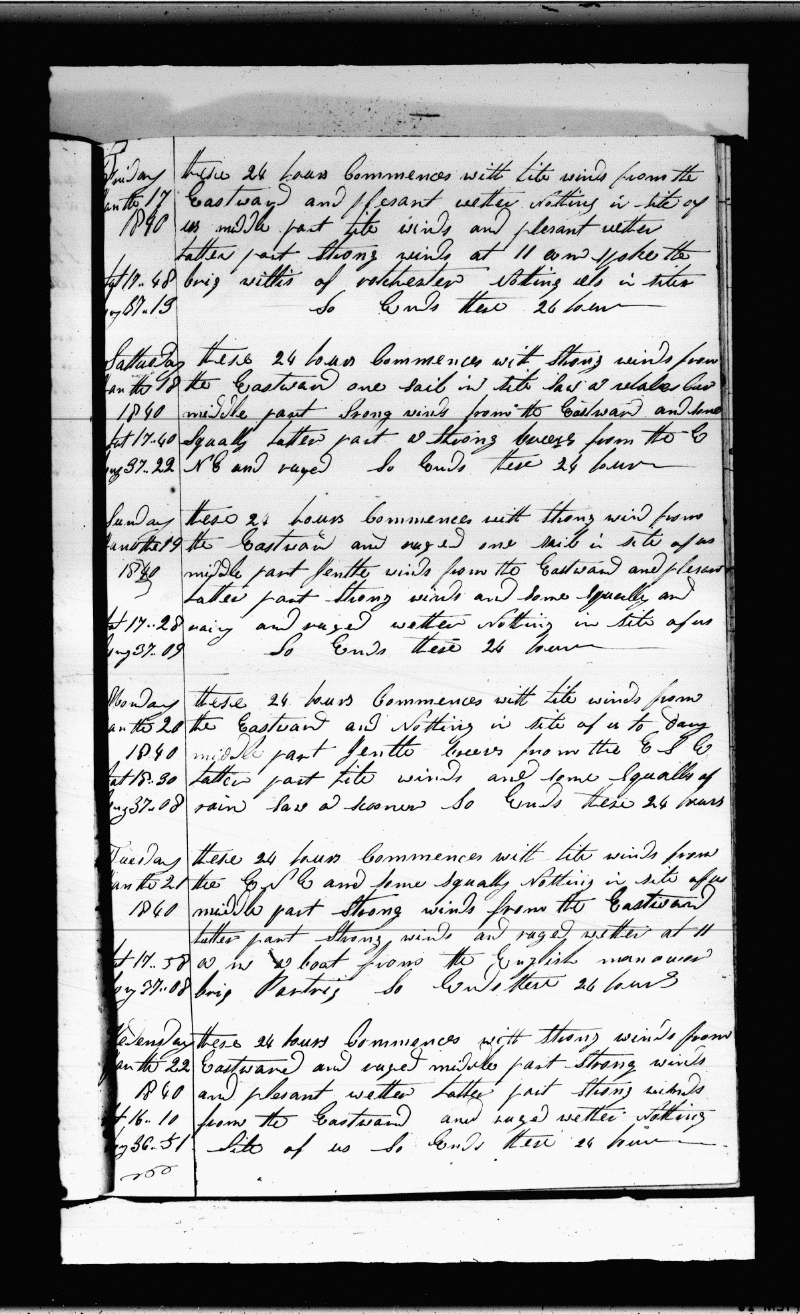 Friday these 24 hours Commences with lite winds from the
Jan the 17 Eastward and plesant wether Nothing in site of
1840 us middle part lite winds and plesant wether
latter part strong winds at 11 spoke the
Lat 17..48 brig willis of rotchester Nothing els in site
Long 37..13 So Ends these 24 hours
Satturday these 24 hours Commences with strong winds from
Jan the 18 the Eastward one sail in site saw a
1840 middle part Srong winds from the Eastward and some
Lat 17..40 Squally latter part a strong breezes from the E
Long 37..22 N E and ruged So Ends these 24 hours
Sunday these 24 hours Commences with strong wind from
Jan the 19 the Eastward and ruged one sail in site of us
1840 middle part Jentle winds from the Eastward and plesant
latter part strong winds and some squally and
Lat 17..28 rainy and ruged wether Nothing in site of us
Long 37..09 So Ends these 24 hours
Monday these 24 hours Commences with lite winds from
Jan the 20 the Eastward and Nothing in site of us to Day
1840 middle part Jentle breezes from the E S E
Lat 18..30 latter part lite winds and some Squalls of
Long 37..08 rain saw a scooner So Ends these 24 hours
Tuesday these 24 hours Commences with lite winds from
Jan the 21 the E N E and some squally Nothing in site of us
1840 middle part Strong winds from the Eastward
latter part Strong winds and ruged wether at 11
Lat 17..58 a m a boat from the English man owar
Long 37..08 brig Partrig So Ends these 24 hours
Wedensday these 24 hours Commences with strong winds from
Jan the 22 Eastward and ruged middle part strong winds
1840 and plesant wether latter part strong winds
Lat 16..10 from the Eastward and ruged wether Nothing
Long 36..51 Site of us So Ends these 24 hours